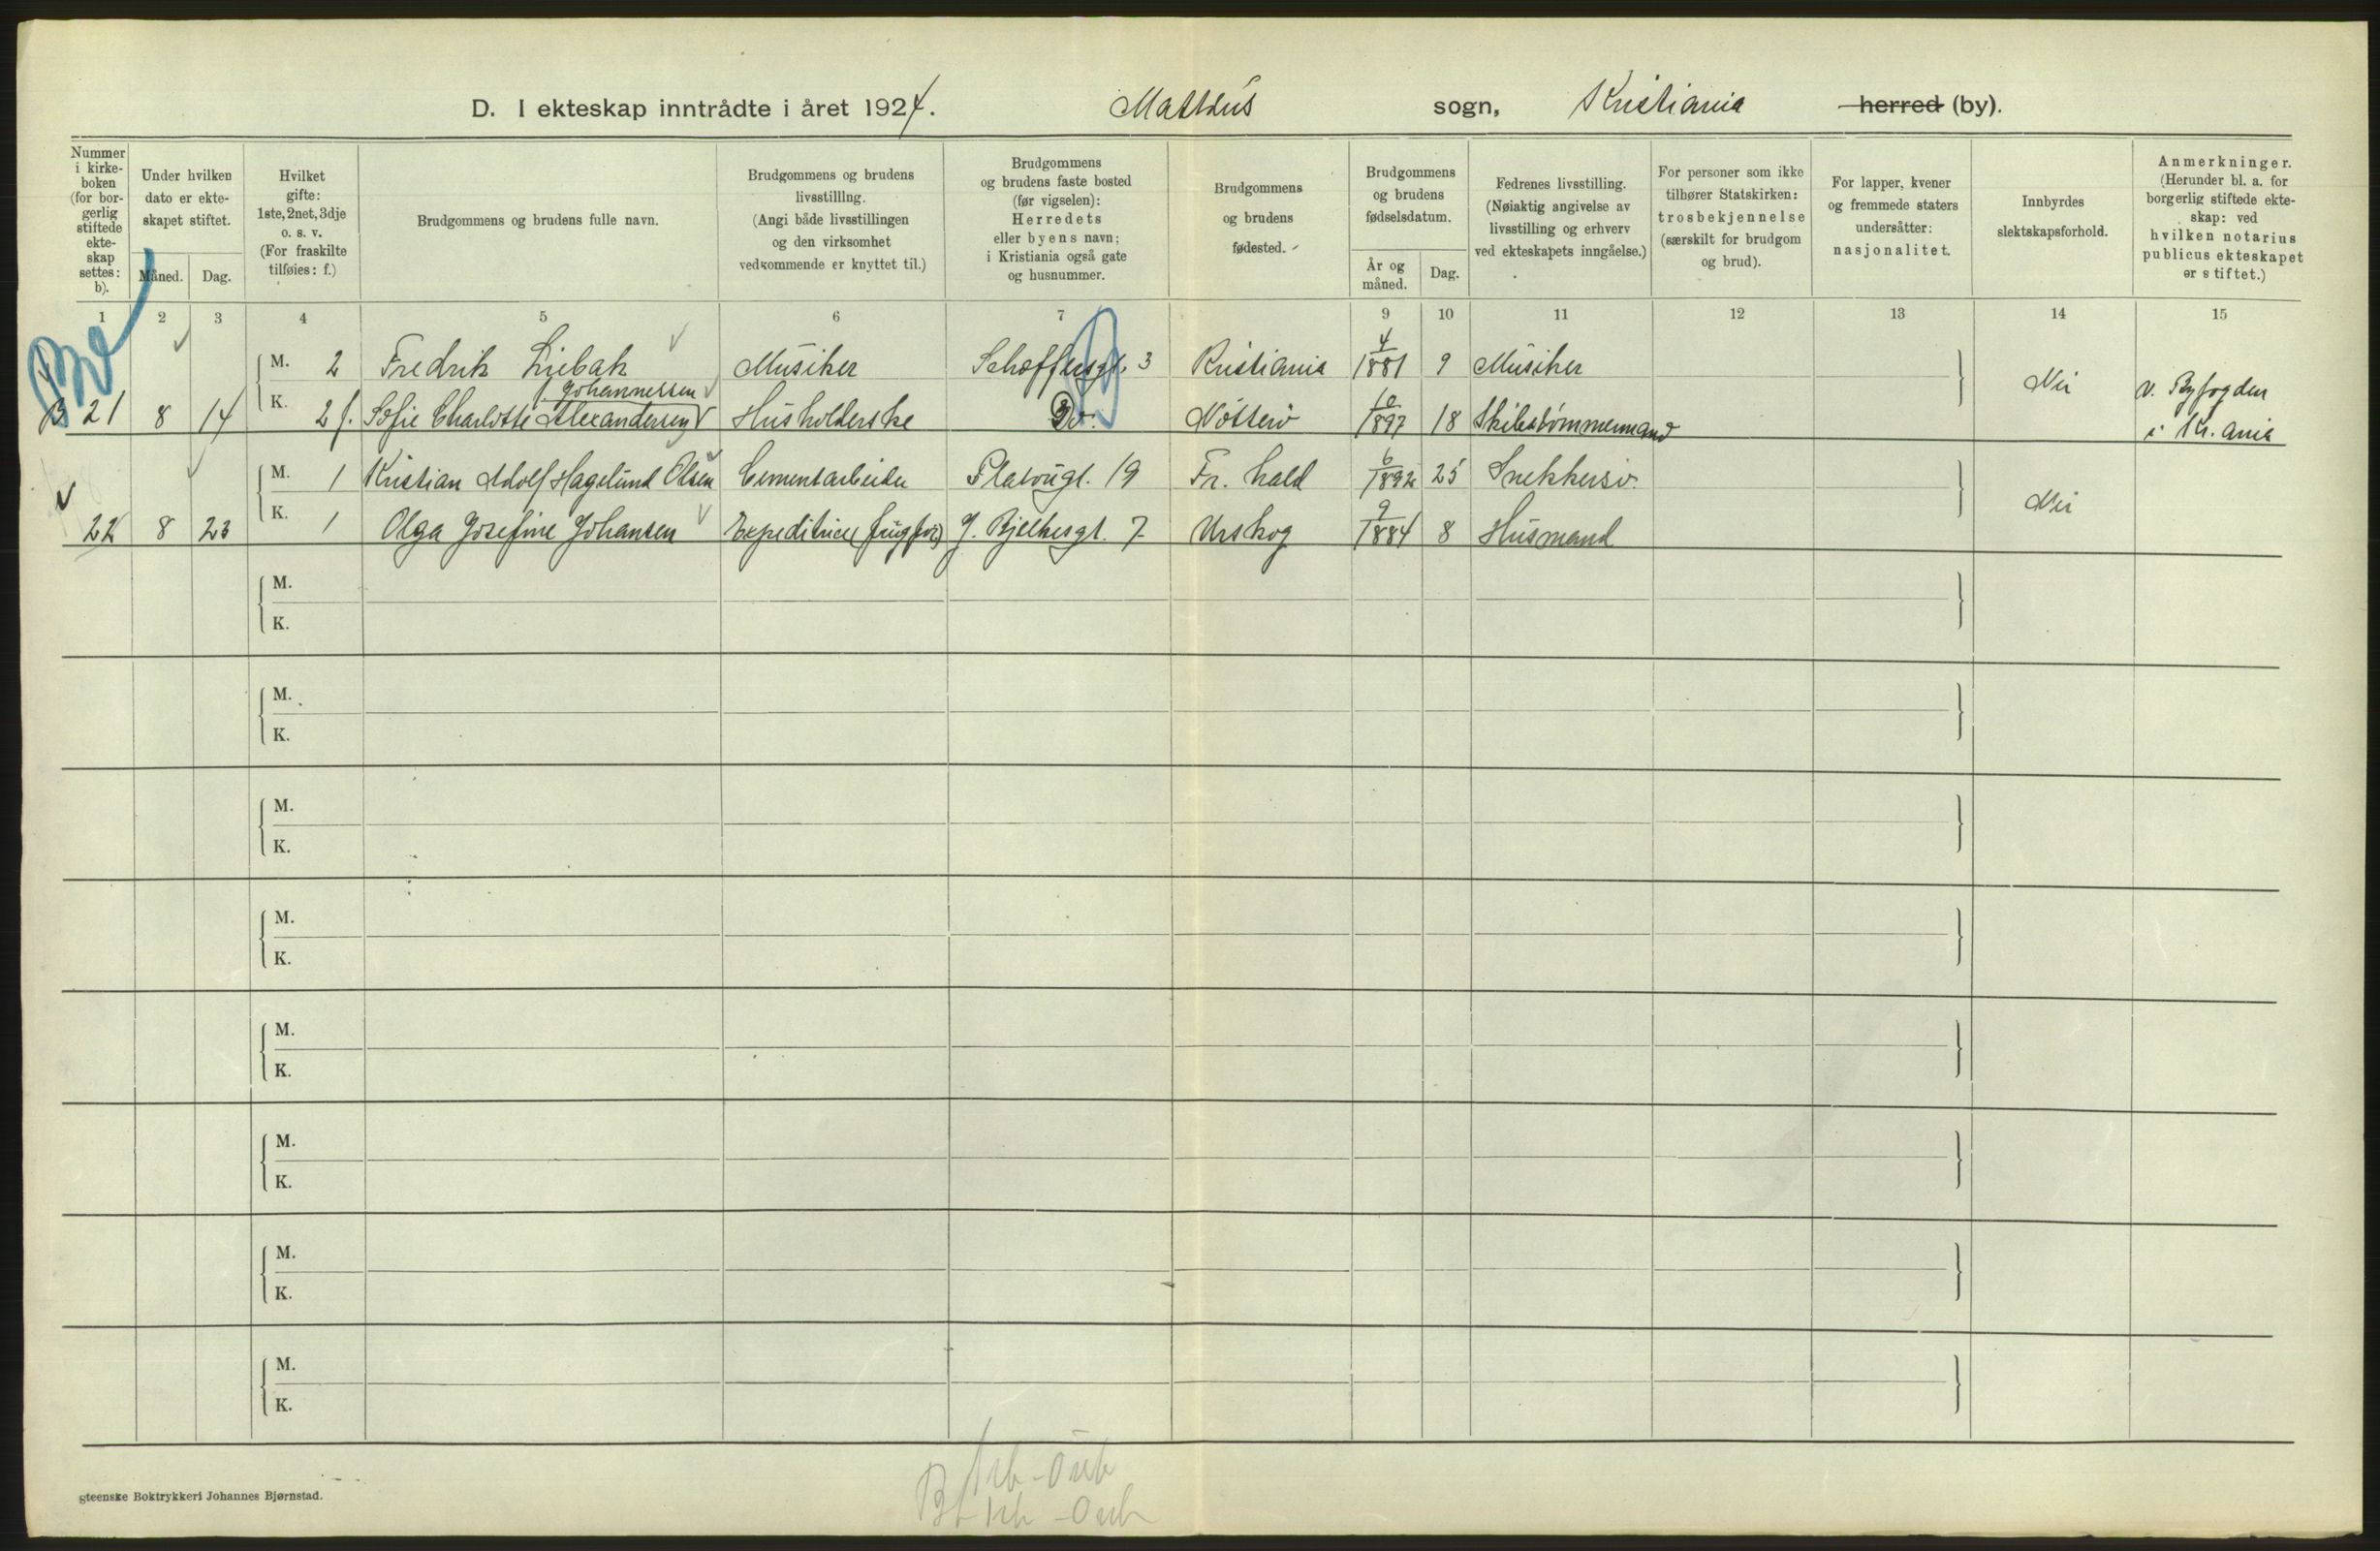 D. I ekteskap inntrådte i året 1924. Mattæus sogn, Kristiania herred (by).
Nummer i kirke-boken (for bor-gerlig stiftede ekte-skap settes: b).
Under hvilken dato er ekte-skapet stiftet.
Måned. Dag.
Hvilket gifte: 1ste, 2net, 3dje o. s. v. (For fraskilte tilføies: f.)
Brudgommens og brudens fulle navn.
Brudgommens og brudens livsstilllng. (Angi både livsstillingen og den virksomhet vedkommende er knyttet til.)
Brudgommens og brudens faste bosted (før vigselen): Herredets eller byens navn; i Kristiania også gate og husnummer.
Brudgommens og brudens fødested.
Brudgommens og brudens fødselsdatum.
År og måned. Dag.
Fedrenes livsstilling. (Nøiaktig angivelse av livsstilling og erhverv ved ekteskapets inngåelse.)
For personer som ikke tilhører Statskirken: trosbekjennelse (særskilt for brudgom og brud).
For lapper, kvener og fremmede staters undersåtter: nasjonalitet.
Innbyrdes slektskapsforhold.
Anmerkninger. (Herunder bl. a. for borgerlig stiftede ekte-skap: ved hvilken notarius publicus ekteskapet er stiftet.)
1 2 3 4 5 6 7 8 9 10 11 12 13 14 15
M. 2 Fredrik Liebak Musiker Schæffersgt. 3 Kristiania 4 1881 9 Musiker
f. Johannessen
B 21 8 14 K. 2 f. Sofie Charlotte Alexandersen Husholderske Do. Nötterö 10 1897 18 Skibstømmermand Nei v. Byfogden i Kr.ania
M. 1 Kristian Adolf Hagelund Olsen Cementarbeider Platougt. 19 Fr. hald 6 1892 25 Snekkersv.
22 8 23 K. 1 Olga Josefine Johansen Expeditrice J. Bjelkesgt. 7 Urskog 9 1884 8 Husmand Nei
M.
K.
M.
K.
M.
K.
M.
K.
M.
K.
M.
K.
M.
K.
M.
K.
Steenske Boktrykkeri Johannes Bjørnstad.